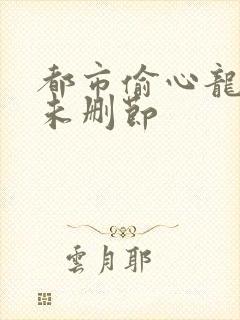 都市偷心龍
未删節
雲月耶